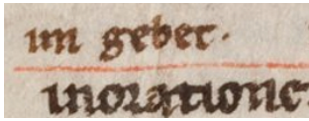 im gebet·
inoratione